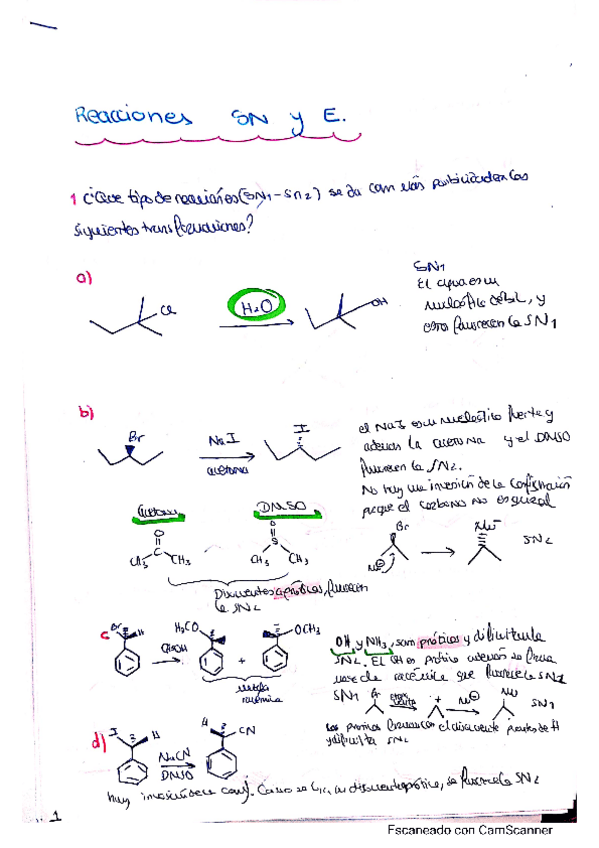 Reacciones SN y E.
1 ¿Que tipo de reacciones (SN1 - SN2) se da con más en las
siguientes transformaciones?
a)
Cl
H2O
OH
SN1
El agua es un
nucleófilo débil, y
favorecen la SN1
b)
Br
NaI
acetona
I
el NaI es un nucleófilo fuerte y
además la acetona y el DMSO
favorecen la SN2.
No hay una inversión de la configuración
porque el carbono no es quiral
Acetona
DMSO
O
O
S
CH3
CH3
CH3
CH3
Br
Nu
Nu
SN2
Disolventes apróticos, favorecen
la SN2
c
Br
H
CH3OH
H3CO
+
OCH3
mezcla
racémica
OH y NH3, son próticos y dificultan la
SN2. El OH es prótico además se forma
una racémica que favorece la SN1
SN1
Br
+
Nu
Nu
SN1
Los próticos forman con el disolvente puentes de H
y dificulta SN2
d)
I
H
NaCN
DMSO
H
CN
hay inversión de conf. Como se un disolvente aprótico, se favorece la SN2
1
Escaneado con CamScanner